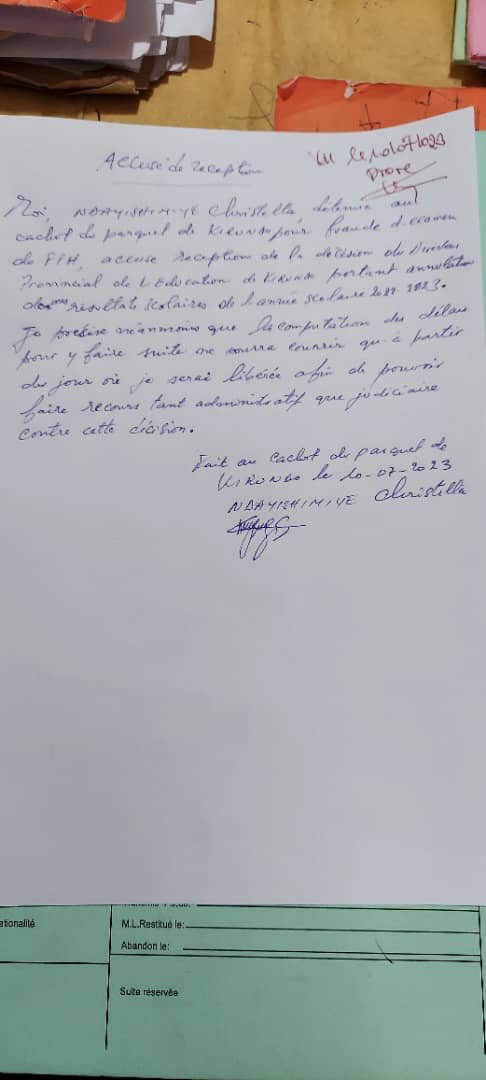 Accusé de reception
Vu le 10/07/023
Moi, NDAYISHIMIYE Christella, détenue au
cachot du parquet de KIRUNDO pour fraude d'examen
de FPH, accuse reception de la décision du Directeur
Provincial de l'Education de KIRUNDO portant annulation
de mes résultats scolaires de l'année scolaire 2022-2023.
Je précise néanmoins que la computation des délais
pour y faire suite ne pourra courrir qu'à partir
du jour où je serai libérée afin de pouvoir
faire recours tant administratif que judiciaire
contre cette décision.
Fait au cachot du parquet de
KIRUNDO le 10-07-2023
NDAYISHIMIYE Christella
ationalité
M.L.Restitué le:
Abandon le:
Suite réservée